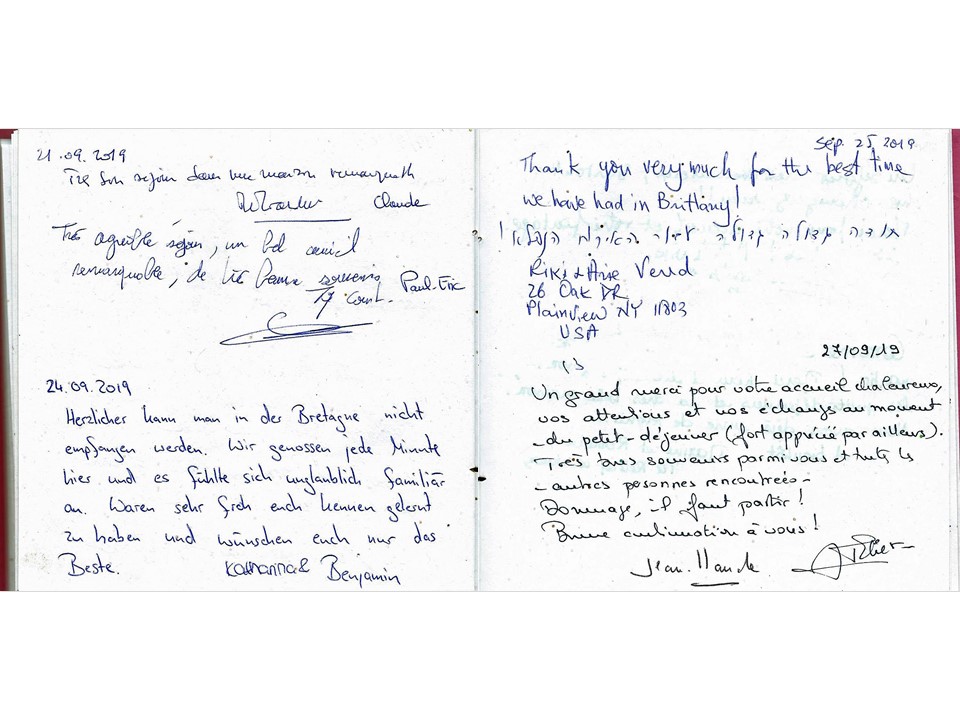 21.09.2019
Très bon séjour dans une maison
Claude
Très agréable séjour, un bel
remarquable, de très beaux souvenirs
Paul-Eric
24.09.2019
Herzlicher kann man in der Bretagne nicht
empfangen werden. Wir genossen jede Minute
hier und es fühlte sich unglaublich familiär
an. Waren sehr froh euch kennen gelernt
zu haben und wünschen euch nur das
Beste.
Katharina & Benjamin
Sep. 25, 2019
Thank you very much for the best time
we have had in Brittany!
תודה גדולה גדולה
Riki & Arie Vered
26 Oak DR
Plainview NY 11803
USA
27/09/19
Un grand merci pour votre accueil chaleureux,
vos attentions et vos échanges au moment
du petit-déjeuner (fort apprécié par ailleurs).
Très bons souvenirs parmi vous et toutes les
autres personnes rencontrées -
Dommage, il faut partir !
Bonne continuation à vous !